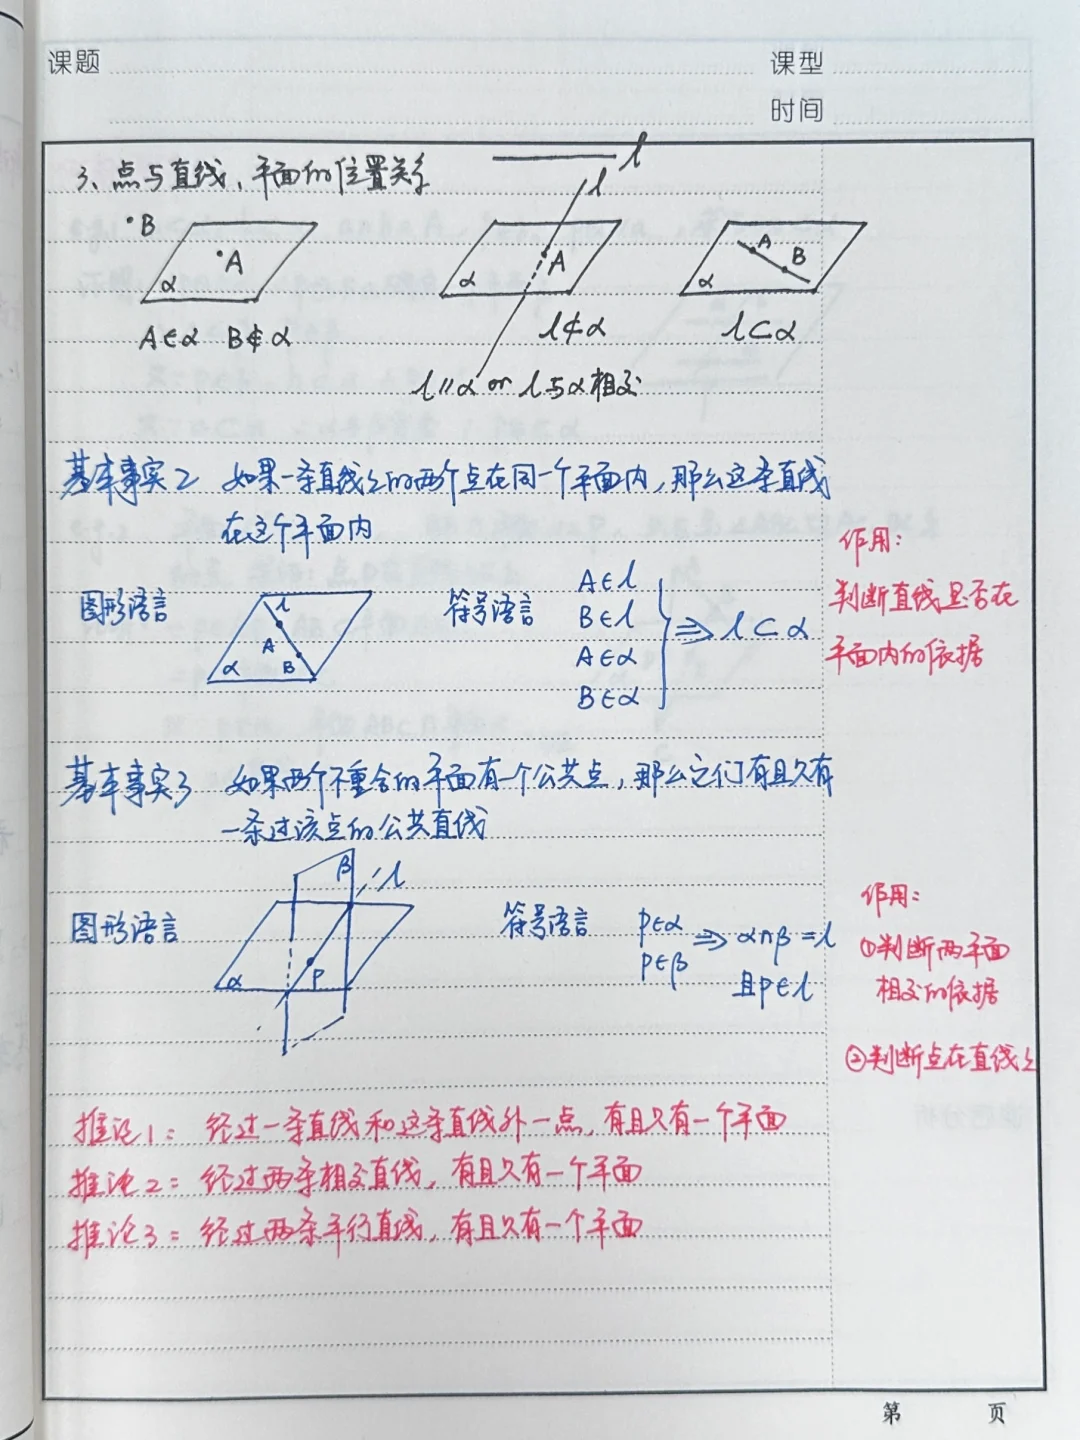 课题
课型
时间
3、点与直线、平面的位置关系
l
l
·B
·A
α
A
α
A
B
α
A∈α B∉α
l⊄α
l⊂α
l∥α or l与α相交
基本事实2 如果一条直线上的两个点在同一个平面内,那么这条直线
在这个平面内
作用:
判断直线是否在
平面内的依据
图形语言
l
A
B
α
符号语言
A∈l
B∈l
A∈α
B∈α
⇒ l⊂α
基本事实3 如果两个不重合的平面有一个公共点,那么它们有且只有
一条过该点的公共直线
图形语言
β
l
P
α
符号语言
P∈α
P∈β
⇒ α∩β=l
且P∈l
作用:
①判断两平面
相交的依据
②判断点在直线上
推论1: 经过一条直线和这条直线外一点,有且只有一个平面
推论2: 经过两条相交直线,有且只有一个平面
推论3: 经过两条平行直线,有且只有一个平面
第 页